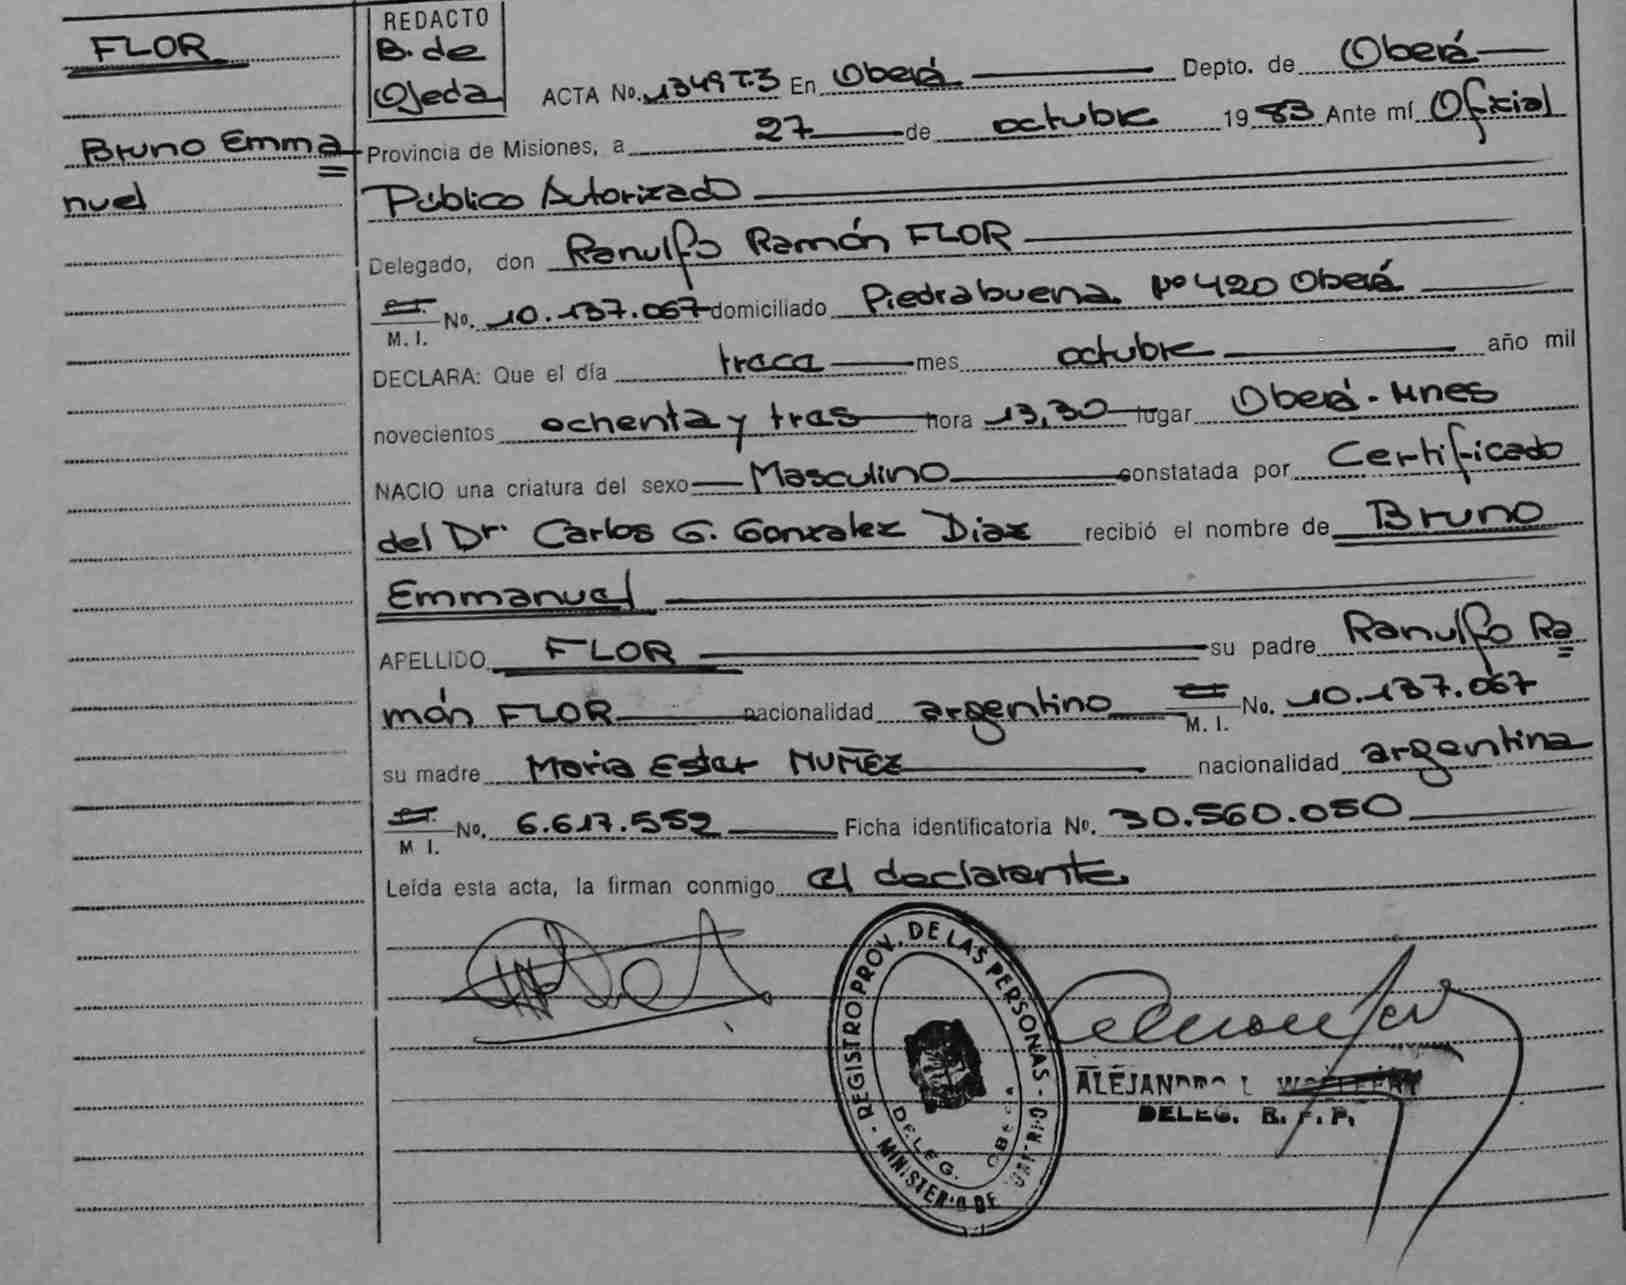 FLOR
Bruno Emma
nuel
REDACTO
B. de
Ojeda
ACTA No. 1349 T.3 En Oberá Depto. de Oberá
Provincia de Misiones, a 27 de octubre 1983 Ante mí Oficial
Público Autorizado
Delegado, don Ranulfo Ramón FLOR
M. I. No. 10.137.067 domiciliado Piedrabuena Nº 420 Oberá
DECLARA: Que el día trece mes octubre año mil
novecientos ochenta y tres hora 13,30 lugar Oberá - Mnes
NACIO una criatura del sexo Masculino constatada por Certificado
del Dr. Carlos G. Gonzalez Diaz recibió el nombre de Bruno
Emmanuel
APELLIDO FLOR su padre Ranulfo Ra
món FLOR nacionalidad argentino M. I. No. 10.137.067
su madre Maria Ester NUÑEZ nacionalidad argentina
M I. No. 6.617.552 Ficha identificatoria No. 30.560.050
Leída esta acta, la firman conmigo el declarante
REGISTRO PROV. DE LAS PERSONAS - MINISTERIO DE
DELEG. OBERA
ALEJANDRO L
DELEG. R. P. P.